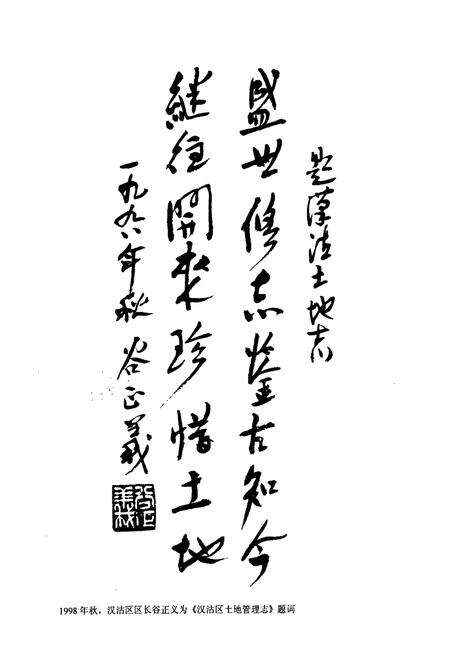 题汉沽土地志
盛世修志鉴古知今
继往開来珍惜土地
一九九八年秋 谷正義
1998 年秋，汉沽区区长谷正义为《汉沽区土地管理志》题词